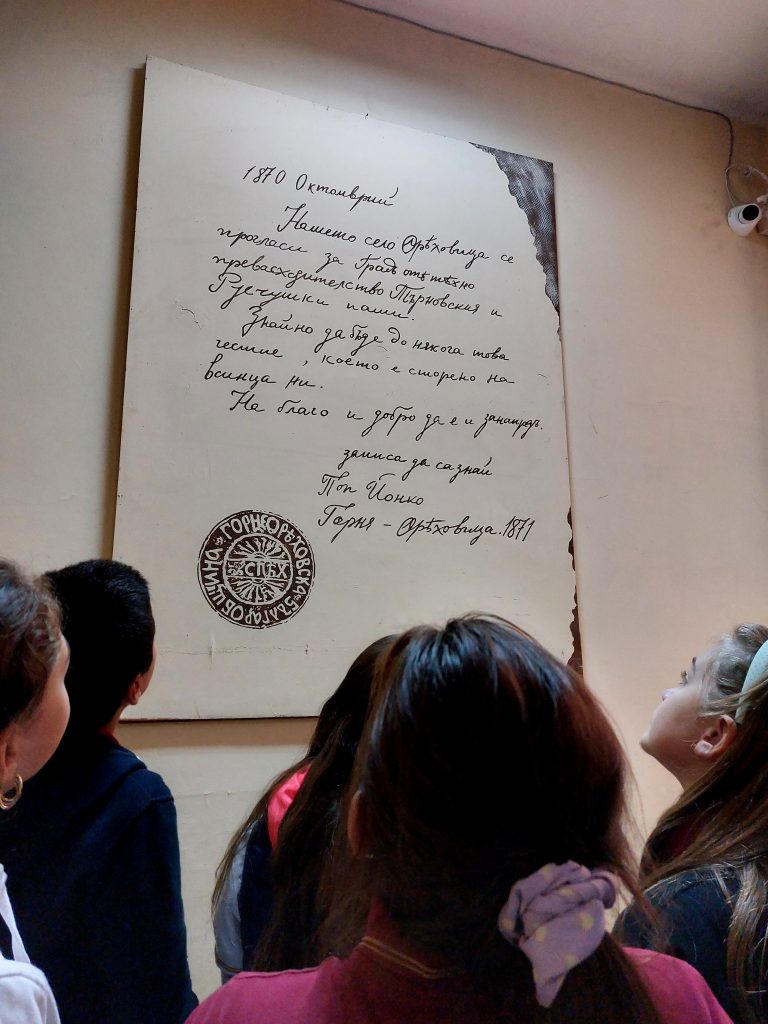 1870 Октомврий
Нашето село Орѣховица се
прогласи за градъ отъ тѣхно
превасходителство Търновския и
Русчушки паши.
Знайно да бѫде до някога това
честие, което е сторено на
всинца ни.
На благо и добро да е и занапредъ.
записа да са знай
Поп Йонко
Горня - Орѣховица. 1871
ГОРНЕОРѢХОВСКА БЪЛГАР. ОБЩИНА